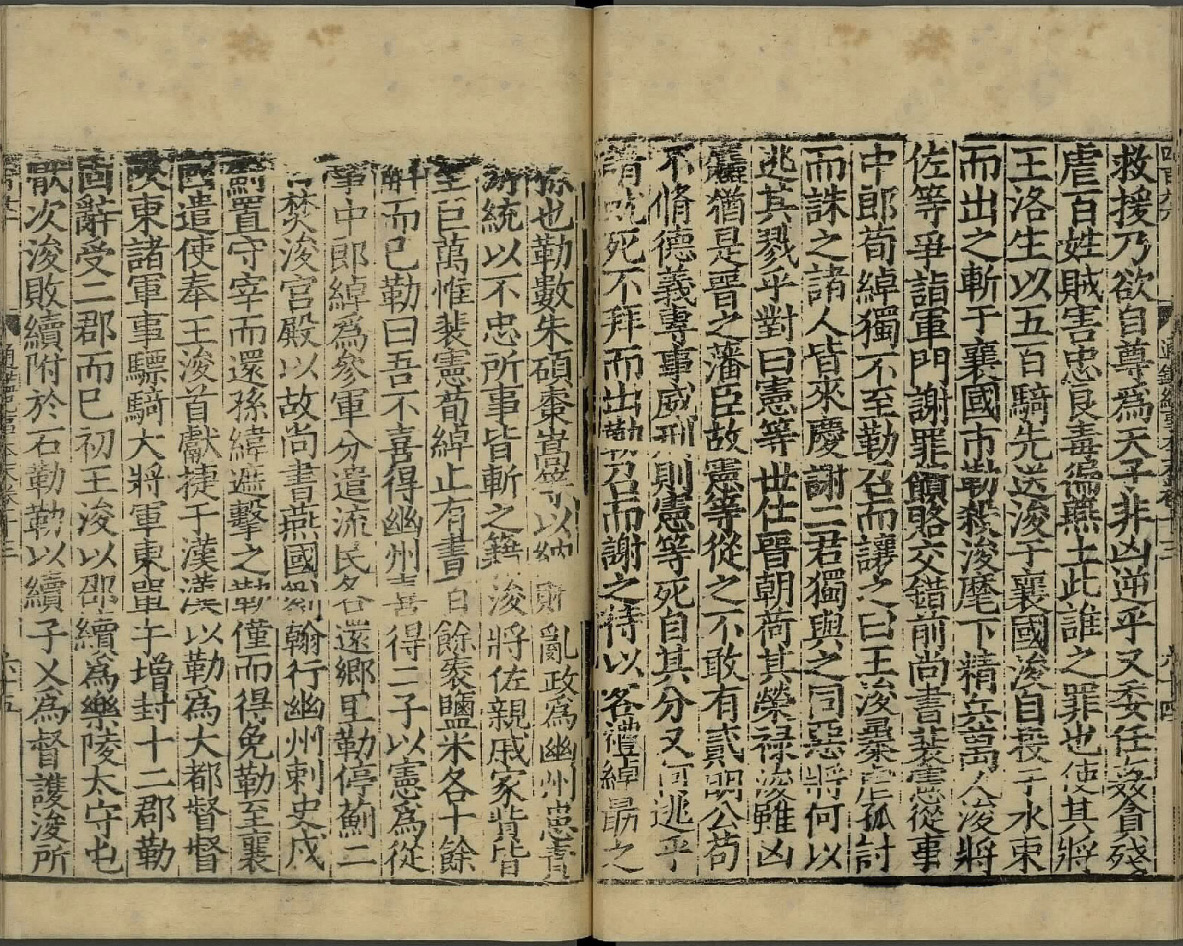 救援乃欲自尊爲天子非凶逆乎又委任姦貪殘
虐百姓賊害忠良毒徧燕土此誰之罪也使其將
王洛生以五百騎先送浚于襄國浚自投于水束
而出之斬于襄國市勒殺浚麾下精兵萬人浚將
佐等爭詣軍門謝罪饋賂交錯前尚書裴憲從事
中郎荀綽獨不至勒召而讓之曰王浚暴虐孤討
而誅之諸人皆來慶謝二君獨與之同惡將何以
逃其戮乎對曰憲等世仕晉朝荷其榮祿浚雖凶
麤猶是晉之藩臣故憲等從之不敢有貳明公苟
不脩德義專事威刑則憲等死自其分又何逃乎
請就死不拜而出勒召而謝之待以客禮綽勗之
孫也勒數朱碩棗嵩等以納財亂政爲幽州患責
游統以不忠所事皆斬之籍浚將佐親戚家貲皆
至巨萬惟裴憲荀綽止有書百餘袠鹽米各十餘
斛而已勒曰吾不喜得幽州喜得二子以憲爲從
事中郎綽爲參軍分遣流民各還鄉里勒停薊二
日焚浚宮殿以故尚書燕國劉翰行幽州刺史戍
薊置守宰而還孫緯遮擊之勒僅而得免勒至襄
國遣使奉王浚首獻捷于漢漢以勒爲大都督督
陜東諸軍事驃騎大將軍東單于增封十二郡勒
固辭受二郡而已初王浚以邵續爲樂陵太守屯
厭次浚敗續附於石勒勒以續子乂爲督護浚所